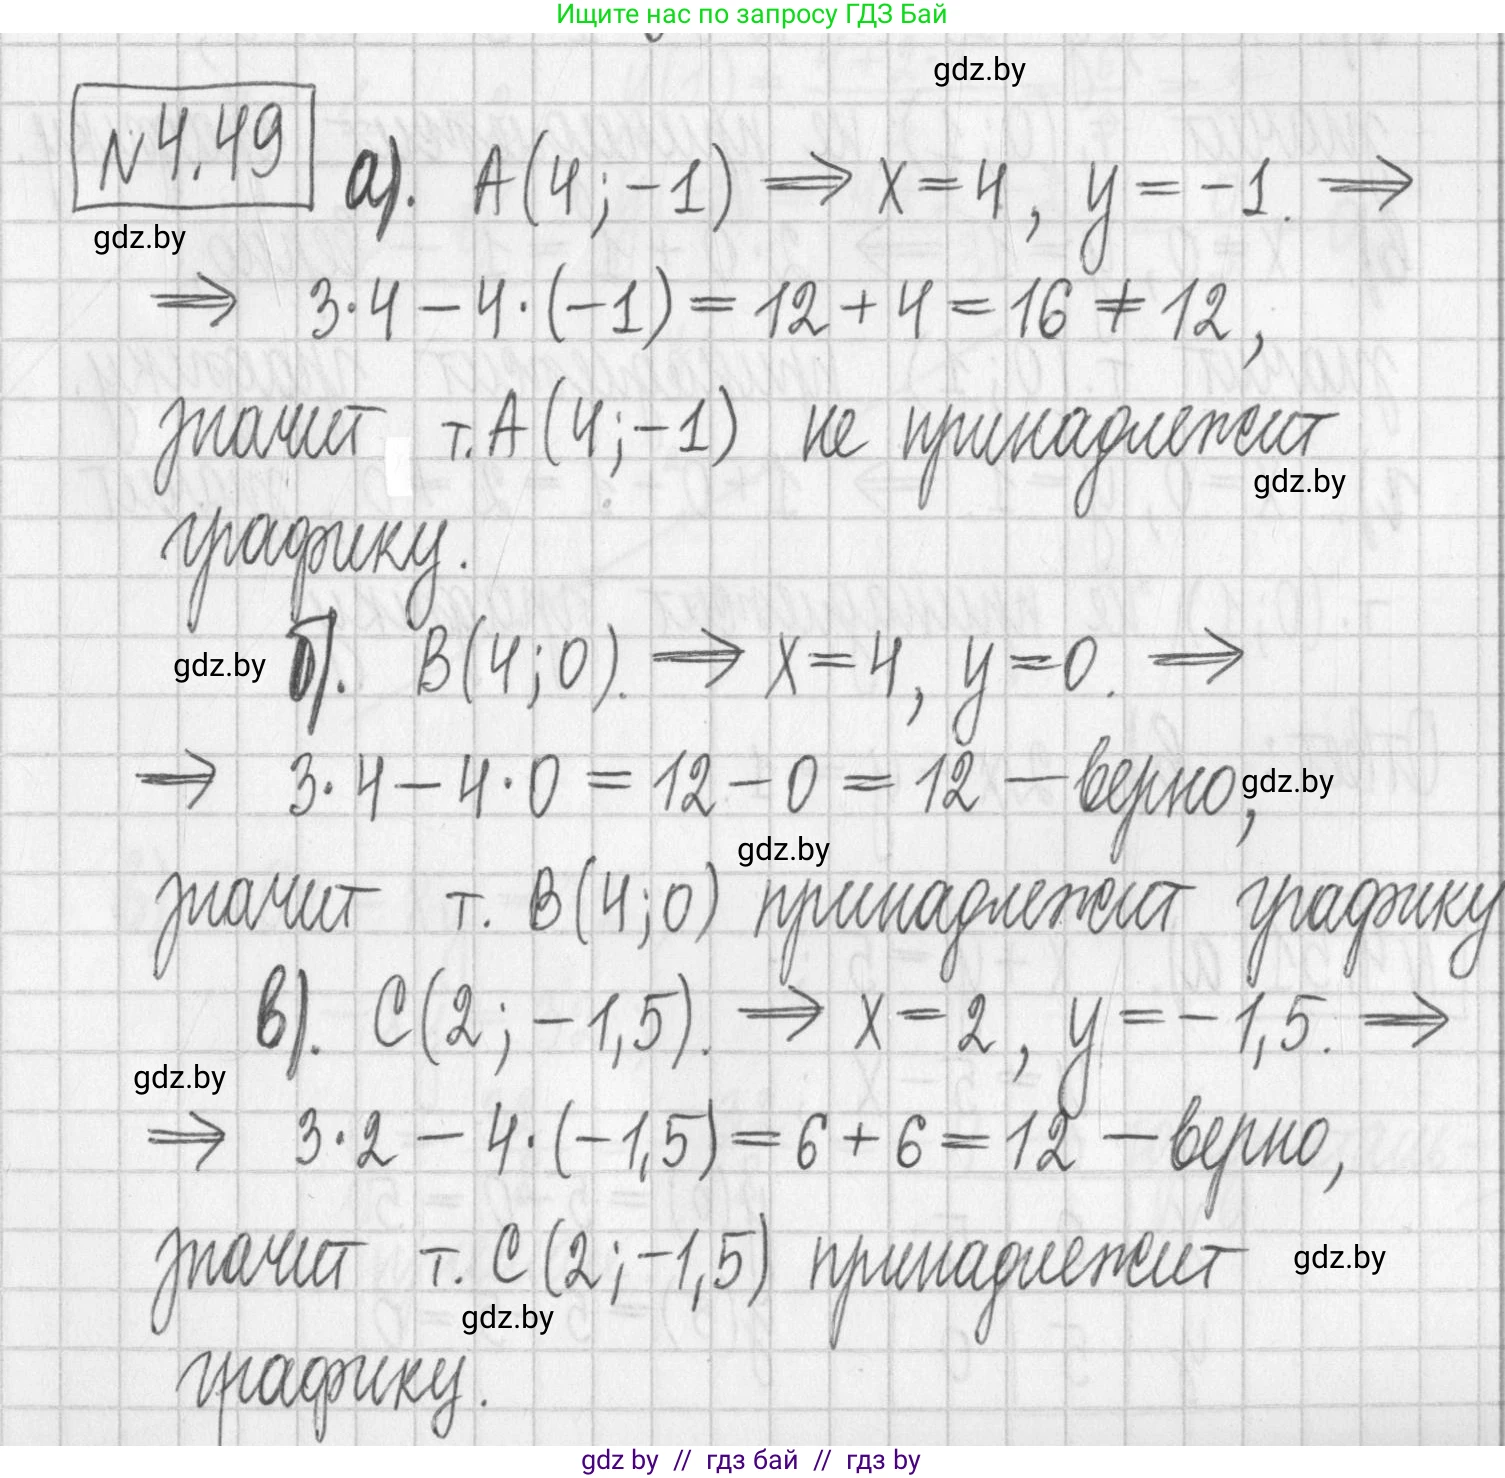 Ищите нас по запросу ГДЗ Бай
gdz.by
№4.49 а). А(4;-1) ⟹ х=4, у=-1. ⟹
gdz.by
⟹ 3·4-4·(-1)=12+4=16≠12,
значит т.А(4;-1) не принадлежит
gdz.by
графику.
gdz.by б). В(4;0). ⟹ х=4, у=0. ⟹
⟹ 3·4-4·0=12-0=12 — верно,
gdz.by
gdz.by
значит т. В(4;0) принадлежит графику
в). С(2;-1,5). ⟹ х=2, у=-1,5. ⟹
gdz.by
⟹ 3·2-4·(-1,5)=6+6=12 — верно,
значит т. С(2;-1,5) принадлежит
gdz.by
gdz.by
графику.
gdz by // гдз бай // гдз by